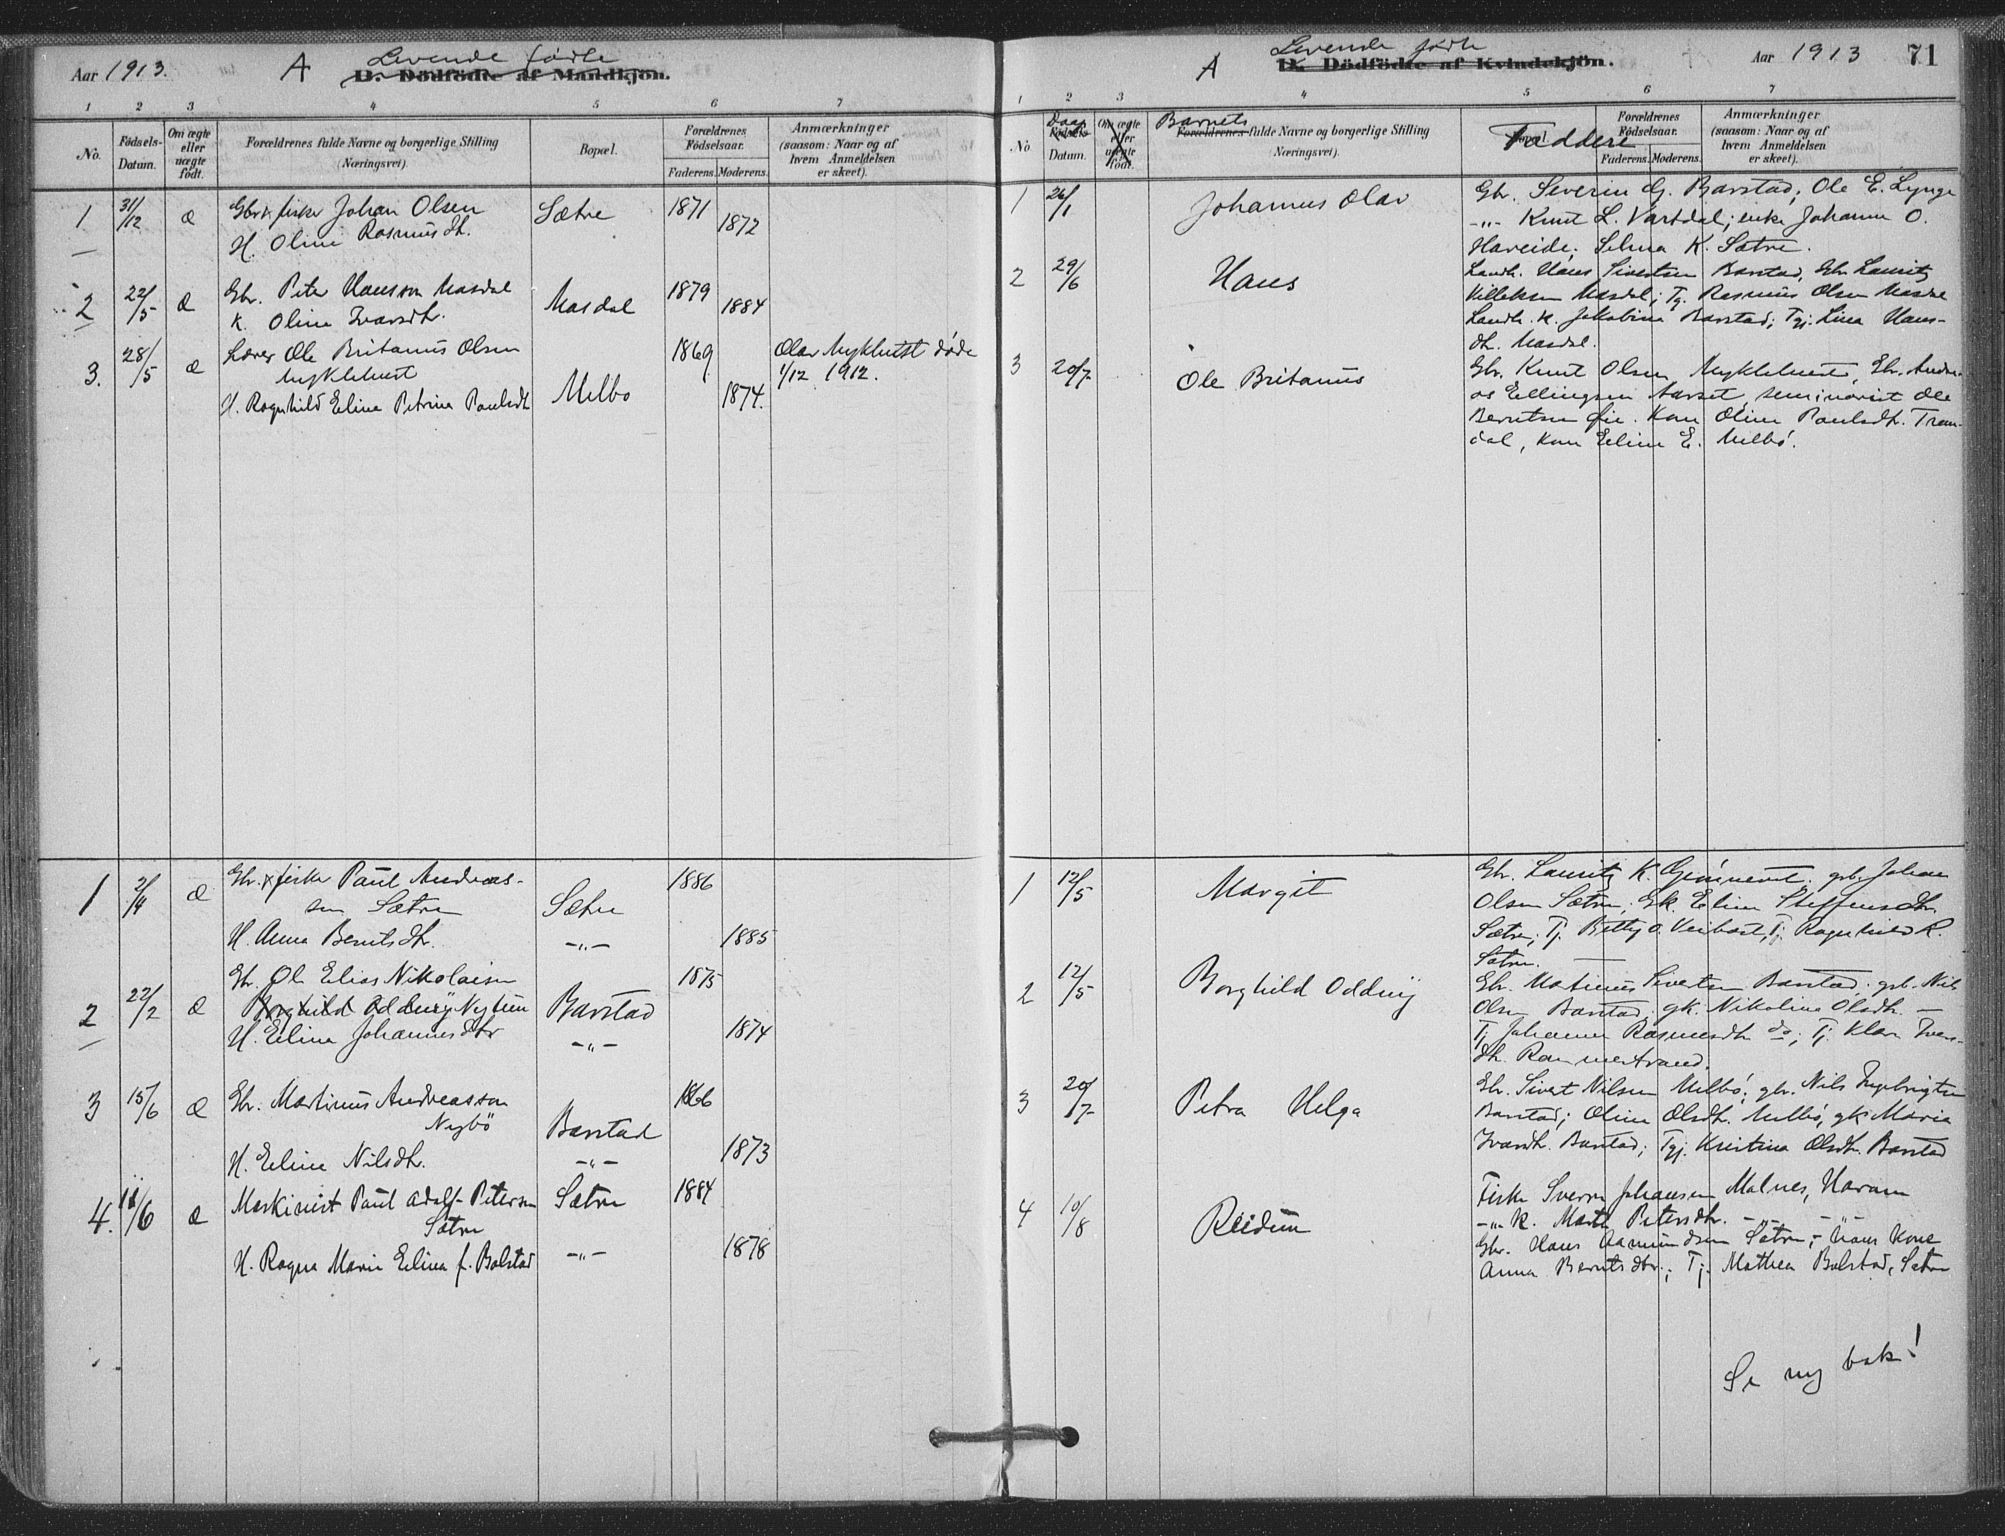 Aar 1913.
A
Levende fødte
D. Dödfödte af Mandkjön.
1 2 3 4 5 6 7
No.
Födsels-
Datum.
Om ægte
eller
uægte
födt.
Forældrenes fulde Navne og borgerlige Stilling
(Næringsvei)
Bopæl.
Forældrenes
Födselsaar.
Faderens. Moderens.
Anmærkninger
(saasom: Naar og af
hvem Anmeldelsen
er skeet).
1 31/12 æ Gbr. x fisker Johan Olsen Sætre 1871
H. Oline Rasmusdh. 1872
2 22/5 æ Gbr. Peter Hansson Masdal Masdal 1879
K. Oline Ivarsdh. 1884
3. 28/5 æ Lærer Ole Britanus Olsen 1869 Olav Myklebust døde
Myklebust 1/12 1912.
H. Ragnhild Eline Petrine Paulsdh Melbo 1874.
1 2/4 æ Gbr. x fisker Paul Andreas-
sen Sætre Sætre 1886
H. Anna Berntsdh. -"- 1885
2 22/2 æ Gbr. Ole Elias Nikolaisen 1875
Borghild Oddny Nytun Barstad
H. Eline Johannesdtr -"- 1874
3 15/6 æ Gbr. Martinus Andreasson 1866
Nybö Barstad
H. Eline Nilsdh. -"- 1873
4. 11/6 æ Maskinist Paul Adolf Petersen Sætre 1884
Sætre
H. Ragna Marie Eline f. Bolstad -"- 1878
A
Levende fødte
D. Dödfödte af Kvindekjön.
Aar 1913
71
1 2 3 4 5 6 7
No
Daaps
Födsels-
Datum.
Om ægte
eller
uægte
födt.
Barnets
Forældrenes fulde Navne og borgerlige Stilling
(Næringsvei).
Bopæl.
Faddere
Forældrenes
Födselsaar.
Faderens. Moderens.
Anmærkninger
(saasom: Naar og af
hvem Anmeldelsen
er skeet).
1 26/1 Johannes Olav Gbr. Severin G. Barstad; Ole E. Lynge
-"- Knut L. Vartdal; enke Johanne O.
Hareide; Selma K. Sætre.
2 29/6 Hans Landh. Hans Sivertsen Barstad, Gbr. Lauritz
Killeksen Masdal; Tj. Rasmus Olsen Masdal
Landh. K. Jakobine Barstad; Tpj. Lina Hans-
dh. Masdal.
3 20/7 Ole Britanus Gbr. Knut Olsen Myklebust, Gbr. Andre-
as Ellingsen Aarset, seminarist Ole
Berntsen Øie. Kone Oline Paulsdh. Tran-
dal, Kone Eline E. Melbö.
1 12/5 Margit Gbr. Lauritz K. gbr. Johan
Olsen Sætre; Gk. Eline Steffensdh.
Sætre; Tj. Betty O. Veibast, Tj. Ragnhild K.
Sætre.
2 12/5 Borghild Oddny Gbr. Martinus Sivertsen Barstad; gbr. Nils
Olsen Barstad; gk. Nikoline Olsdh. -
Tj. Johanne Rasmusdh do; Tj. Klara Ivars-
dh.
3 20/7 Petra Helga Gbr. Sivert Nilsen Melbö; gbr. Nils Ingebrigtsen
Barstad; Oline Olsdh. Melbö, gk Maria
Ivarsdh. Barstad; Tpj. Kristine Olsdh. Barstad
4 10/8 Reidun Fisker Sverre Johansen Malnes, Haram
-"- K. Marte Petersdtr. -"- -"-
Gbr. Hans Aamundsen Sætre; hans Kone
Anna Berntsdtr.; Tj. Mathea Bolstad, Sætre
Se ny bak!